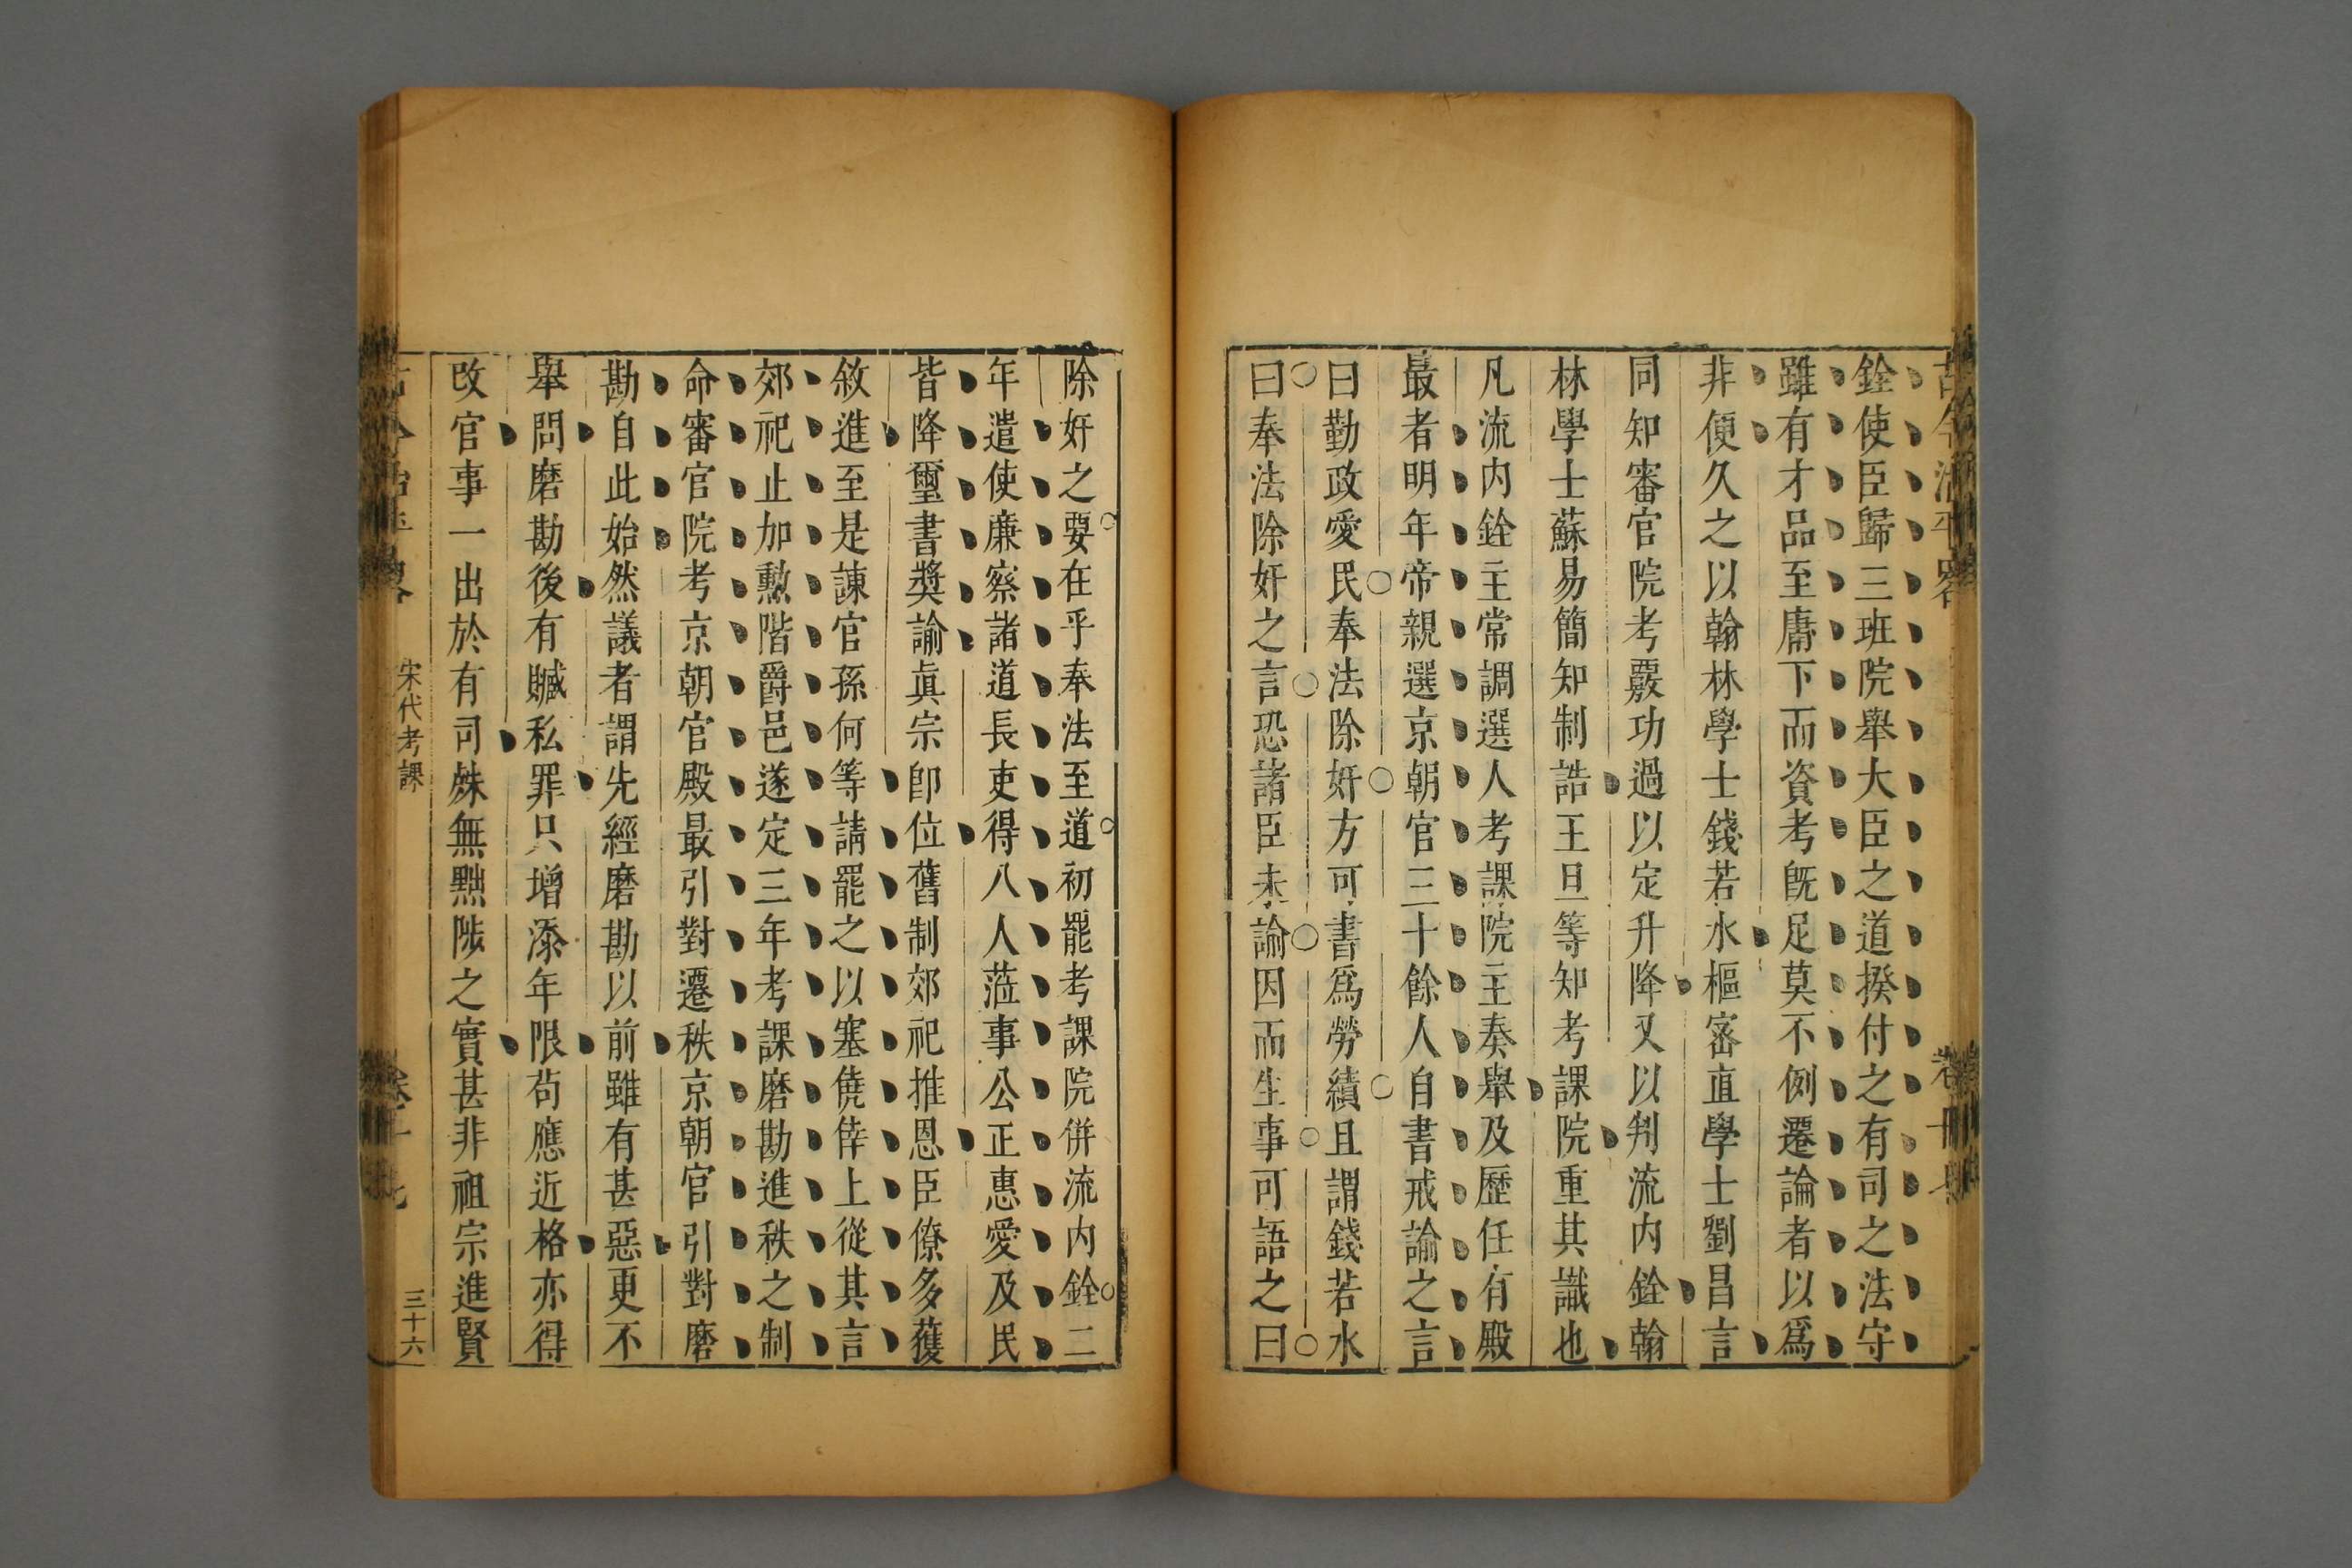 銓使臣歸三班院舉大臣之道揆付之有司之法守
雖有才品至庸下而資考旣足莫不例遷論者以爲
非便久之以翰林學士錢若水樞密直學士劉昌言
同知審官院考覈功過以定升降又以判流内銓翰
林學士蘇易簡知制誥王旦等知考課院重其識也
凡流内銓主常調選人考課院主奏舉及歷任有殿
最者明年帝親選京朝官三十餘人自書戒諭之言
曰勤政愛民奉法除奸方可書爲勞績且謂錢若水
曰奉法除奸之言恐諸臣未諭因而生事可語之曰
除奸之要在乎奉法至道初罷考課院併流内銓二
年遣使廉察諸道長吏得八人蒞事公正惠愛及民
皆降璽書奬諭眞宗卽位舊制郊祀推恩臣僚多獲
敘進至是諫官孫何等請罷之以塞僥倖上從其言
郊祀止加勲階爵邑遂定三年考課磨勘進秩之制
命審官院考京朝官殿最引對遷秩京朝官引對磨
勘自此始然議者謂先經磨勘以前雖有甚惡更不
舉問磨勘後有贓私罪只增添年限苟應近格亦得
改官事一出於有司殊無黜陟之實甚非祖宗進賢
宋代考課
三十六